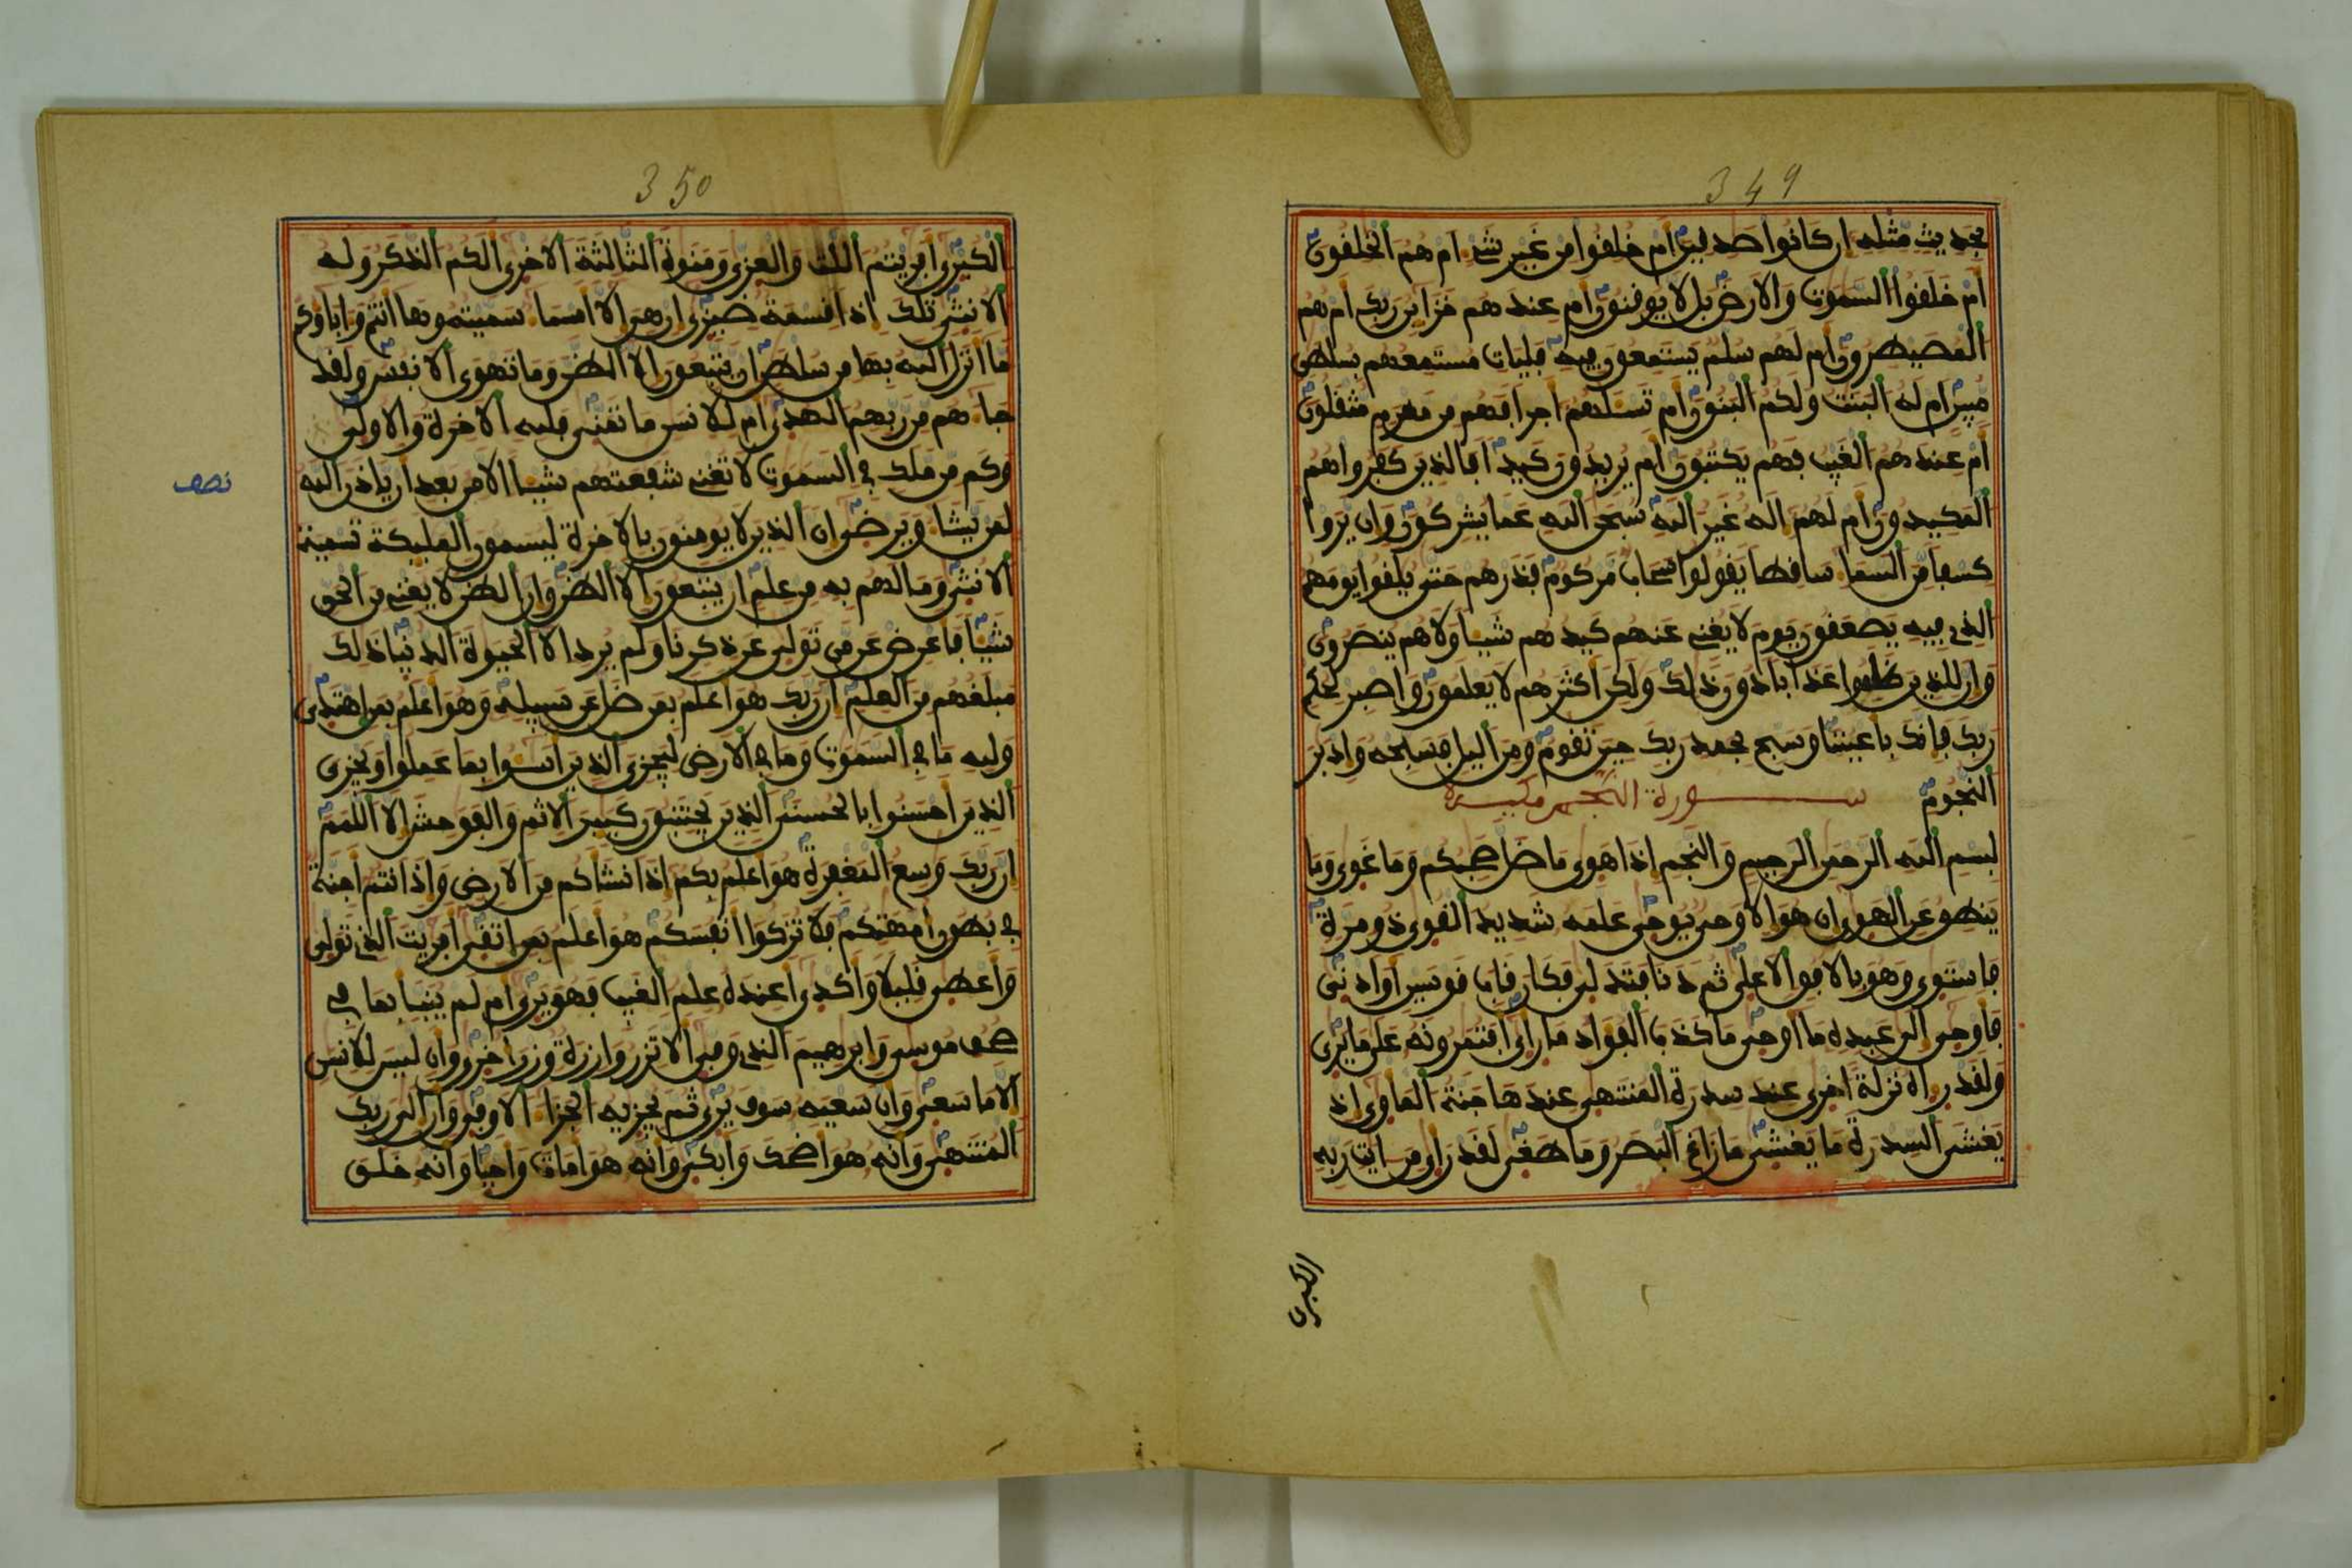 349
بحديث مثله ان كانوا صدفين ام خلفوا من غير شے ام هم الخلفون
ام خلفوا السموت والارض بل لا يوفنون ام عندهم خزاين ربك ام هم
المصيطرون ام لهم سلم يستمعون فيه فليات مستمعهم بسلطن
مبين ام له البنت ولكم البنون ام تسلهم اجرا فهم من مغرم مثفلون
ام عندهم الغيب فهم يكتبون ام يريدون كيدا فالذين كفروا هم
المكيدون ام لهم اله غير الله سبحن الله عما يشركون وان يروا
كسفا من السما سافطا يفولوا سحاب مركوم فذرهم حتى يلفوا يومهم
الذي فيه يصعفون يوم لا يغنے عنهم كيدهم شيا ولا هم ينصرون
وان للذين ظلموا عذابا دون ذلك ولكن اكثرهم لا يعلمون واصبر لحكم
ربك فانك باعيننا وسبح بحمد ربك حين تفوم ومن اليل فسبحه وادبر
النجوم سورة النجم مكية
بسم الله الرحمن الرحيم والنجم اذا هوى ما ضل صحبكم وما غوى وما
ينطق عن الهوى ان هو الا وحى يوحى علمه شديد الفوى ذو مرة
فاستوى وهو بالافق الاعلى ثم دنا فتدلى فكان فاب فوسين او ادنى
فاوحى الى عبده ما اوحى ما كذب الفواد ما راى افتمرونه على ما يرى
ولفد راه نزلة اخرى عند سدرة المنتهى عندها جنة الماوى اذ
يغشى السدرة ما يغشى ما زاغ البصر وما طغى لفد راى من ايت ربه
الكبرى
350
الكبرى افريتم اللت والعزى ومنوة الثالثة الاخرى الكم الذكر وله
الانثى تلك اذا فسمة ضيزى ان هى الا اسما سميتموها انتم واباوكم
ما انزل الله بها من سلطن ان يتبعون الا الظن وما تهوى الانفس ولفد
جاهم من ربهم الهدى ام للانسن ما تمنى فلله الاخرة والاولى
وكم من ملك فے السموت لا تغنے شفعتهم شيا الا من بعد ان ياذن الله
لمن يشا ويرضى ان الذين لا يومنون بالاخرة ليسمون المليكة تسمية
الانثى وما لهم به من علم ان يتبعون الا الظن وان الظن لا يغنے من الحق
شيا فاعرض عن من تولى عن ذكرنا ولم يرد الا الحيوة الدنيا ذلك
مبلغهم من العلم ان ربك هو اعلم بمن ضل عن سبيله وهو اعلم بمن اهتدى
ولله ما فے السموت وما فے الارض ليجزى الذين اسوا بما عملوا ويجزى
الذين احسنوا بالحسنى الذين يجتنبون كبير الاثم والفوحش الا اللمم
ان ربك وسع المغفرة هو اعلم بكم اذ انشاكم من الارض واذ انتم اجنة
فے بطون امهتكم فلا تزكوا انفسكم هو اعلم بمن اتفى افريت الذي تولى
واعطى فليلا واكدى اعنده علم الغيب فهو يرى ام لم ينبا بما فے
صحف موسى وابرهيم الذي وفى الا تزر وازرة وزر اخرى وان ليس للانسن
الا ما سعى وان سعيه سوف يرى ثم يجزيه الجزا الاوفى وان الى ربك
المنتهى وانه هو اضحك وابكى وانه هو امات واحيا وانه خلق
نصف